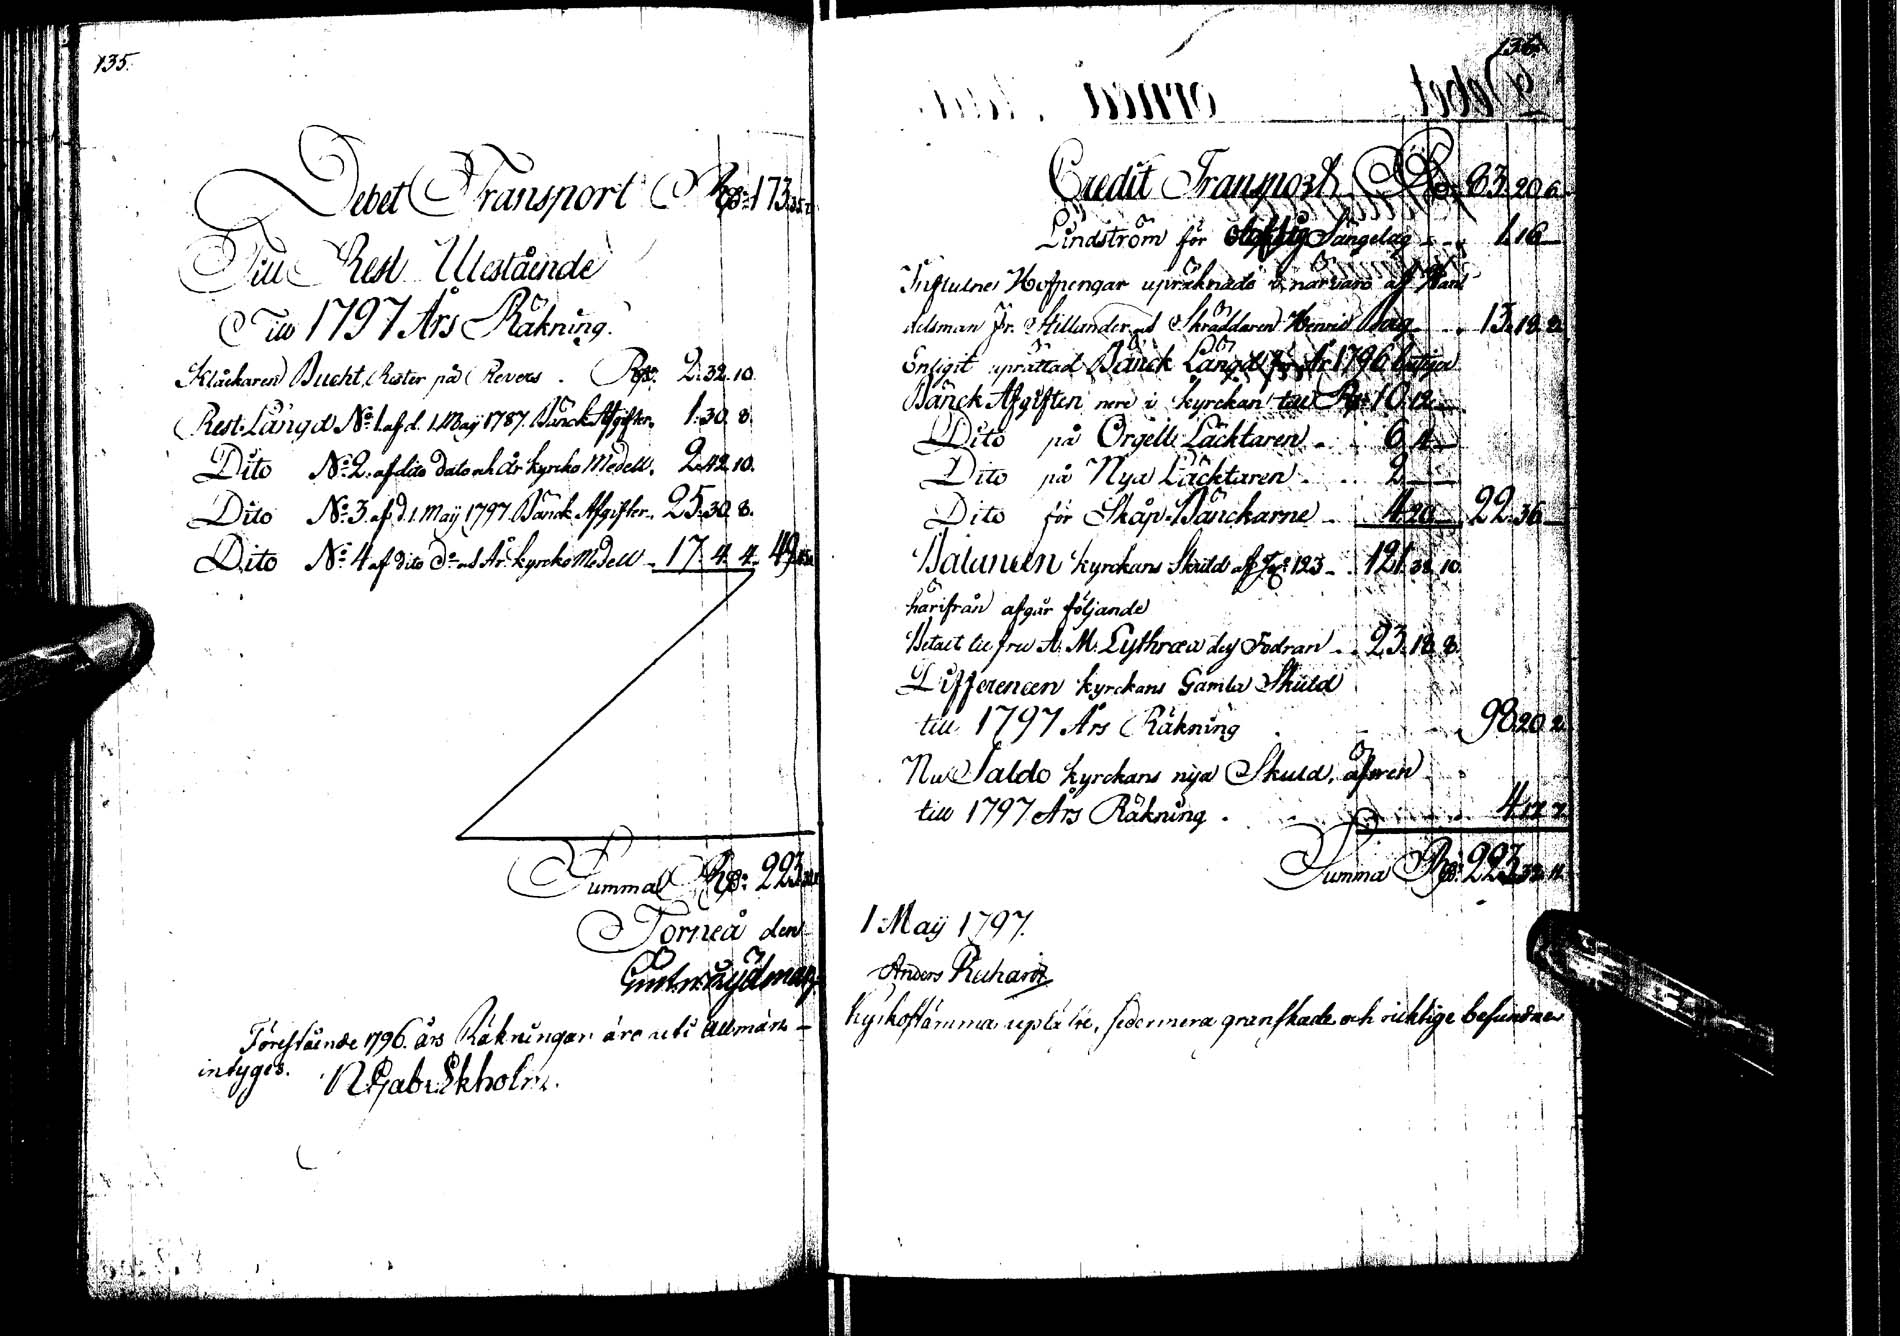 135.
Debet Transport Rdr 173.
Till Rest Utestående
Till 1797 Års Räkning.
Klåckaren Bucht, Rester på Revers . Rdr. 2.32.10.
Rest Längd No 1 af d. 1 Maÿ 1787. Bänck Afgifter. 1.30.8.
Dito No 2. af dito dato och år kyrcko Medell. 2.42.10.
Dito No 3. af d. 1. Maÿ 1797. Bänck Afgifter. 25.30.8.
Dito No 4 af dito do och År kyrcko Medell 17.4.4. 49.
Summa Rdr 223.
Torneå den
Förestående 1796 års Räkningar äro uti Allmän
intÿges. N Gab: Ekholm.
136.
Debet
Credit Transport Rdr 83.20.6.
Lindström för Sångelag 1.16
Influtne Hofpengar upräknade i närvaro af Han
delsman Jr. Hellander och Skräddaren Henric 13.18.2
Enligit uprättad Bänck Längd för År 1796
Bänck Afgiften nere i kyrckan till Rdr 10.12
Dito på Orgell Läcktaren 6.4
Dito på Nya Läcktaren 2
Dito för Skåp-Bänckarne 4.20 22.36
Balancen kyrckans Skuld af 123 121.38.10.
härifrån afgår följande
Betalt till fru A. M. Lythræa des Fodran 23.18.8.
Differencen kyrckans Gamla Skuld
till 1797 Års Räkning 98.20.2.
Nu Saldo kyrckans nya Skuld, äfwen
till 1797 Års Räkning . 4.17.7.
Summa Rdr 223.32.11.
1 Maÿ 1797.
Anders Ruhard
kyrkostämma uplästte, sedermera granskade och richtige befundne